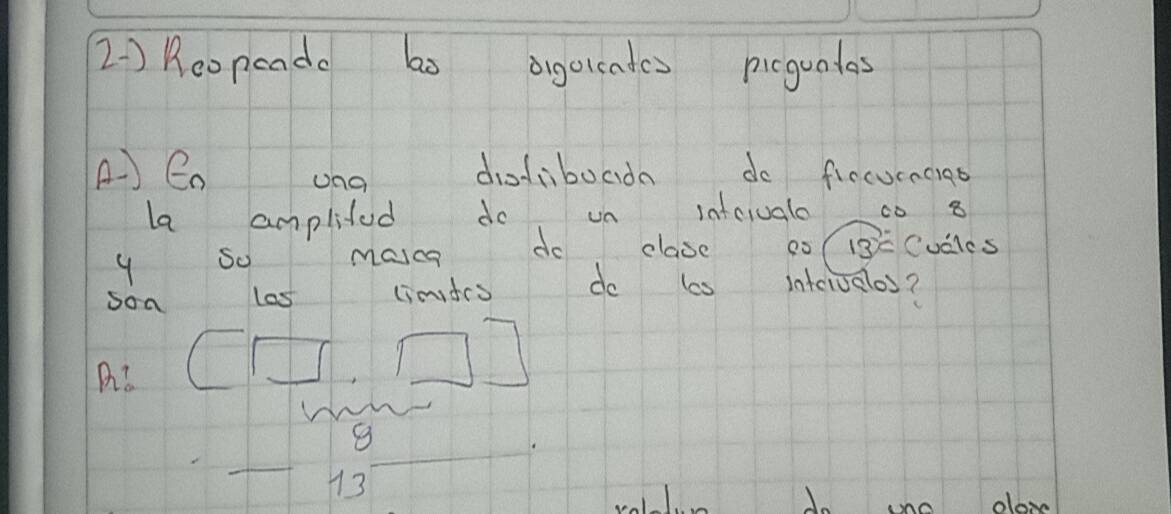 2-) Responde las siguientes preguntas
A-) En una distribución de frecuencias
la amplitud de un intervalo es 8
y su marca de clase es 13 = Cuáles
son los limites de los intervalos?
R:
8
13
de una clase